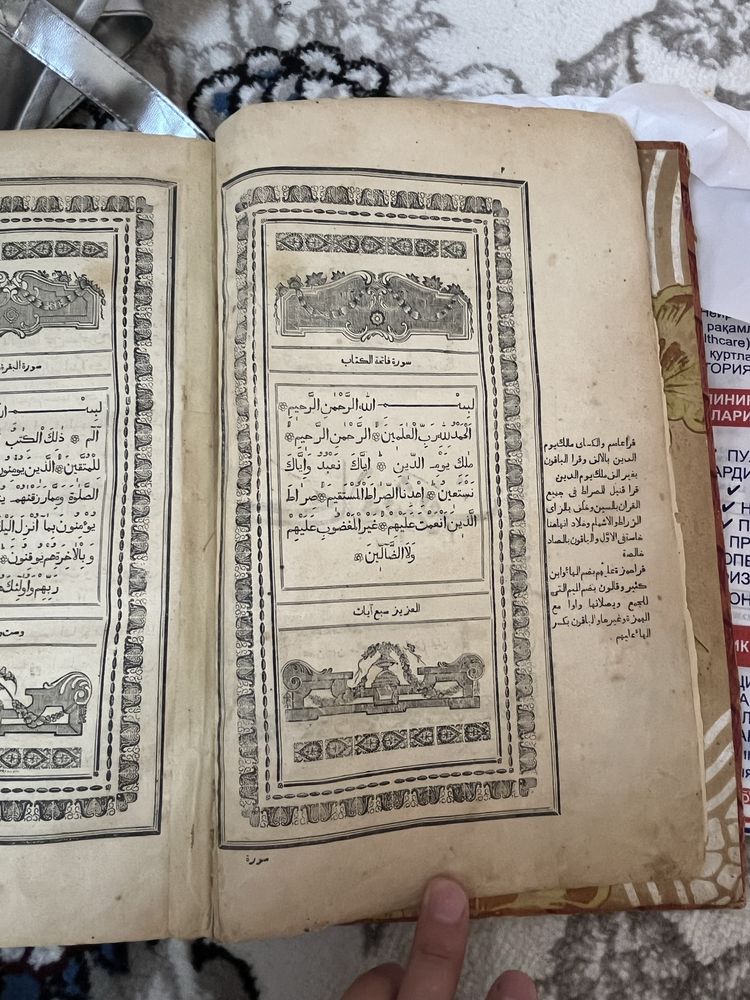 ٢
سورة فاتحة الكتاب
بِسْــــمِ اللهِ الرَّحْمٰنِ الرَّحِيمِ
اَلْحَمْدُ لِلّٰهِ رَبِّ الْعٰلَمِينَ الرَّحْمٰنِ الرَّحِيمِ
مٰلِكِ يَوْمِ الدِّينِ اِيَّاكَ نَعْبُدُ وَاِيَّاكَ
نَسْتَعِينُ اِهْدِنَا الصِّرَاطَ الْمُسْتَقِيمَ صِرَاطَ
الَّذِينَ اَنْعَمْتَ عَلَيْهِمْ غَيْرِ الْمَغْضُوبِ عَلَيْهِمْ
وَلَا الضَّآلِّينَ
العزيز سبع آيات
قرأ عاصم والكسائى مالك يوم
الدين بالالف وقرا الباقون
بغير الف ملك يوم الدين
قرا قنبل الصراط فى جميع
القران بالسين وخلف بالزاى
الزراط والاشمام وخلاد اشمامها
خاصة فى الاول والباقون بالصاد
خالصة
قرا حمزة عليهم بضم الهاء وابن
كثير وقالون بضم الميم التى
للجمع ويصلانها واوا مع
الهمزة وغيرها والباقون بكسر
الهاء عليهم
سورة
سورة البقرة
بِسْــــمِ
الٓمٓ ذٰلِكَ الْكِتٰبُ
لِلْمُتَّقِينَ الَّذِينَ يُؤْمِنُونَ
الصَّلٰوةَ وَمِمَّا رَزَقْنٰهُمْ
يُؤْمِنُونَ بِمَا اُنْزِلَ اِلَيْكَ
وَبِالْاٰخِرَةِ هُمْ يُوقِنُونَ
رَبِّهِمْ وَاُولٰئِكَ
рақамл
lthcare)
қуртла
ТОРИЯ